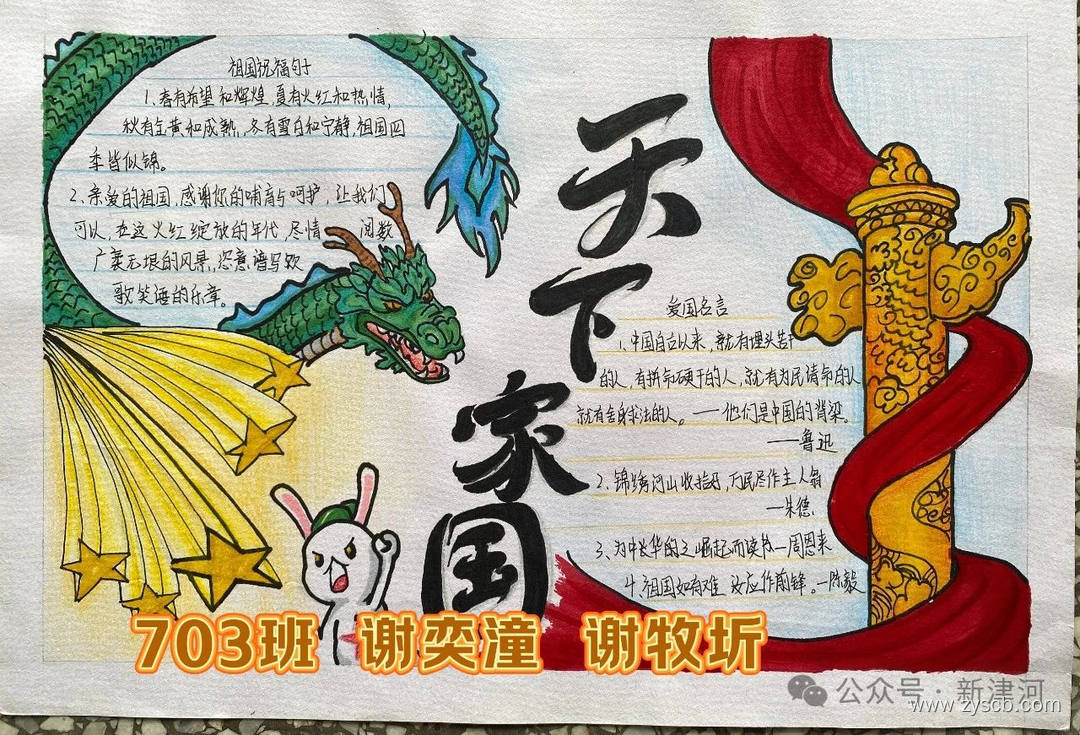 祖国祝福句子
1、春有希望和辉煌,夏有火红和热情,
秋有金黄和成熟,冬有雪白和宁静,祖国四
季皆似锦。
2、亲爱的祖国,感谢你的哺育与呵护,让我们
可以,在这火红绽放的年代,尽情 阅数
广袤无垠的风景,恣意谱写欢
歌笑语的乐章。
天下家国
爱国名言
1、中国自古以来,就有埋头苦干
的人,有拼命硬干的人,就有为民请命的人
就有舍身求法的人。——他们是中国的脊梁。
——鲁迅
2、锦绣河山收拾好,万民尽作主人翁
—朱德
3、为中华之崛起而读书—周恩来
4、祖国如有难 汝应作前锋。—陈毅
703班 谢奕潼 谢牧圻
公众号·新津河
www.zyscb.com